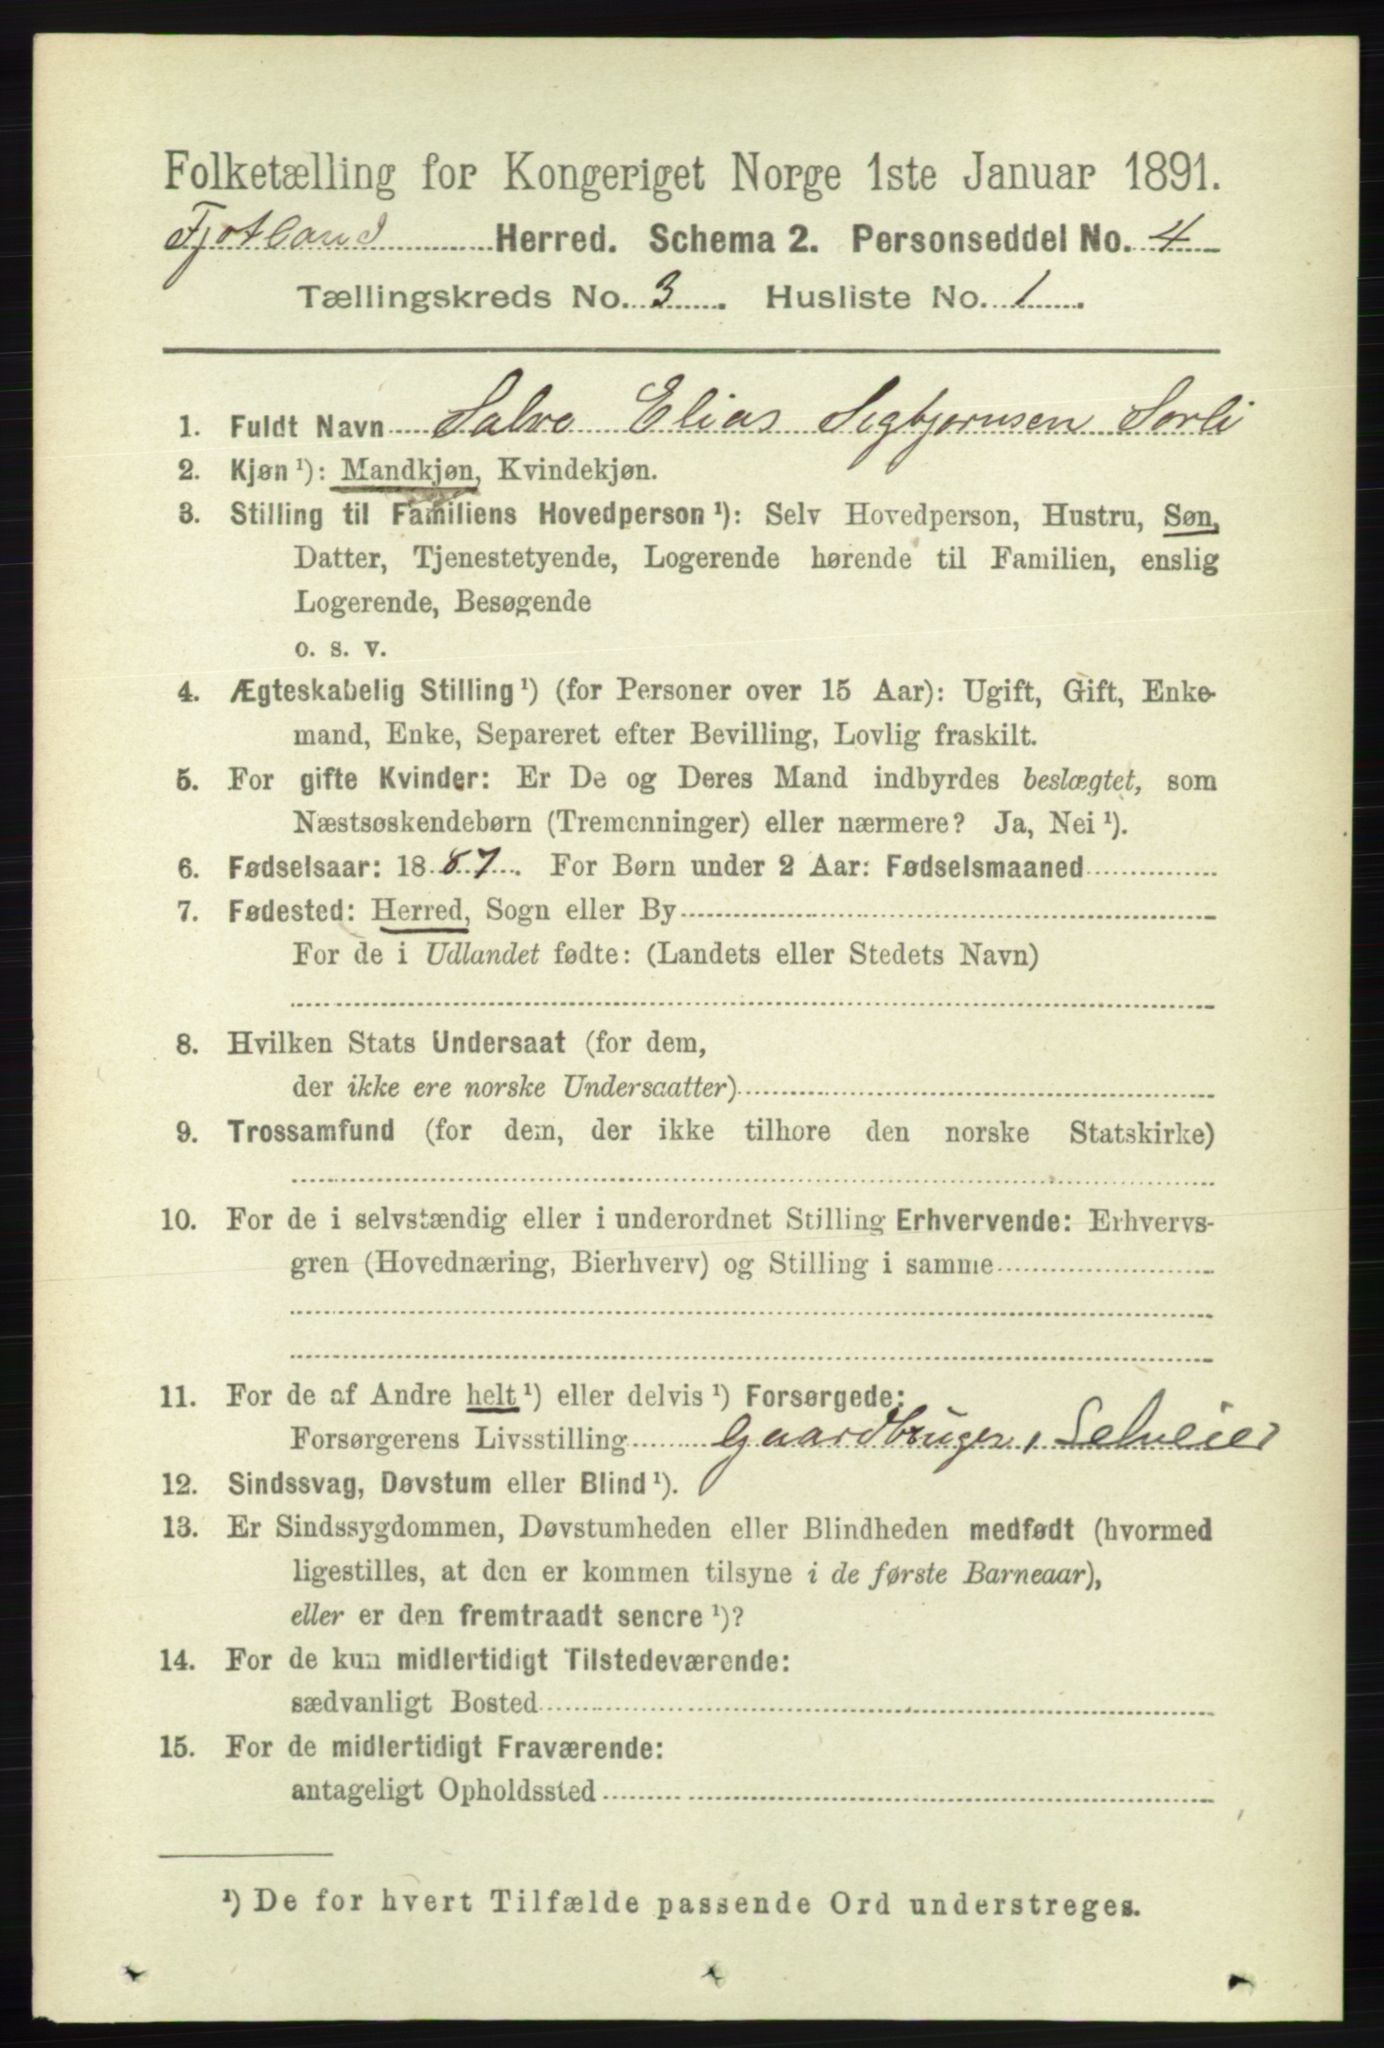 Folketælling for Kongeriget Norge 1ste Januar 1891.
Fjotland Herred. Schema 2. Personseddel No. 4
Tællingskreds No. 3. Husliste No. 1.
1. Fuldt Navn Salve Elias Segbjørnsen Sorli
2. Kjøn¹): Mandkjøn, Kvindekjøn.
3. Stilling til Familiens Hovedperson¹): Selv Hovedperson, Hustru, Søn,
Datter, Tjenestetyende, Logerende hørende til Familien, enslig
Logerende, Besøgende
o. s. v.
4. Ægteskabelig Stilling¹) (for Personer over 15 Aar): Ugift, Gift, Enke-
mand, Enke, Separeret efter Bevilling, Lovlig fraskilt.
5. For gifte Kvinder: Er De og Deres Mand indbyrdes beslægtet, som
Næstsøskendebørn (Tremenninger) eller nærmere? Ja, Nei¹).
6. Fødselsaar: 1887. For Børn under 2 Aar: Fødselsmaaned
7. Fødested: Herred, Sogn eller By
For de i Udlandet fødte: (Landets eller Stedets Navn)
8. Hvilken Stats Undersaat (for dem,
der ikke ere norske Undersaatter)
9. Trossamfund (for dem, der ikke tilhøre den norske Statskirke)
10. For de i selvstændig eller i underordnet Stilling Erhvervende: Erhvervs-
gren (Hovednæring, Bierhverv) og Stilling i samme
11. For de af Andre helt¹) eller delvis¹) Forsørgede:
Forsørgerens Livsstilling Gaardbruger, Selveier
12. Sindssvag, Døvstum eller Blind¹).
13. Er Sindssygdommen, Døvstumheden eller Blindheden medfødt (hvormed
ligestilles, at den er kommen tilsyne i de første Barneaar),
eller er den fremtraadt senere¹)?
14. For de kun midlertidigt Tilstedeværende:
sædvanligt Bosted
15. For de midlertidigt Fraværende:
antageligt Opholdssted
¹) De for hvert Tilfælde passende Ord understreges.